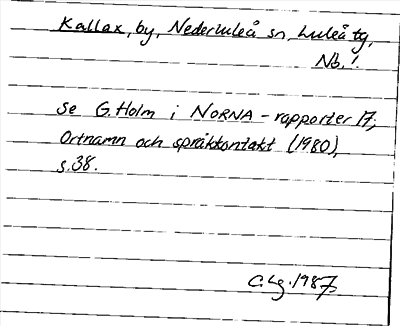 Kallax, by, Nederluleå sn, Luleå tg,
Nb.!
Se G. Holm i NORNA-rapporter 17,
Ortnamn och språkkontakt (1980),
s.38.
C.Lg. 1987